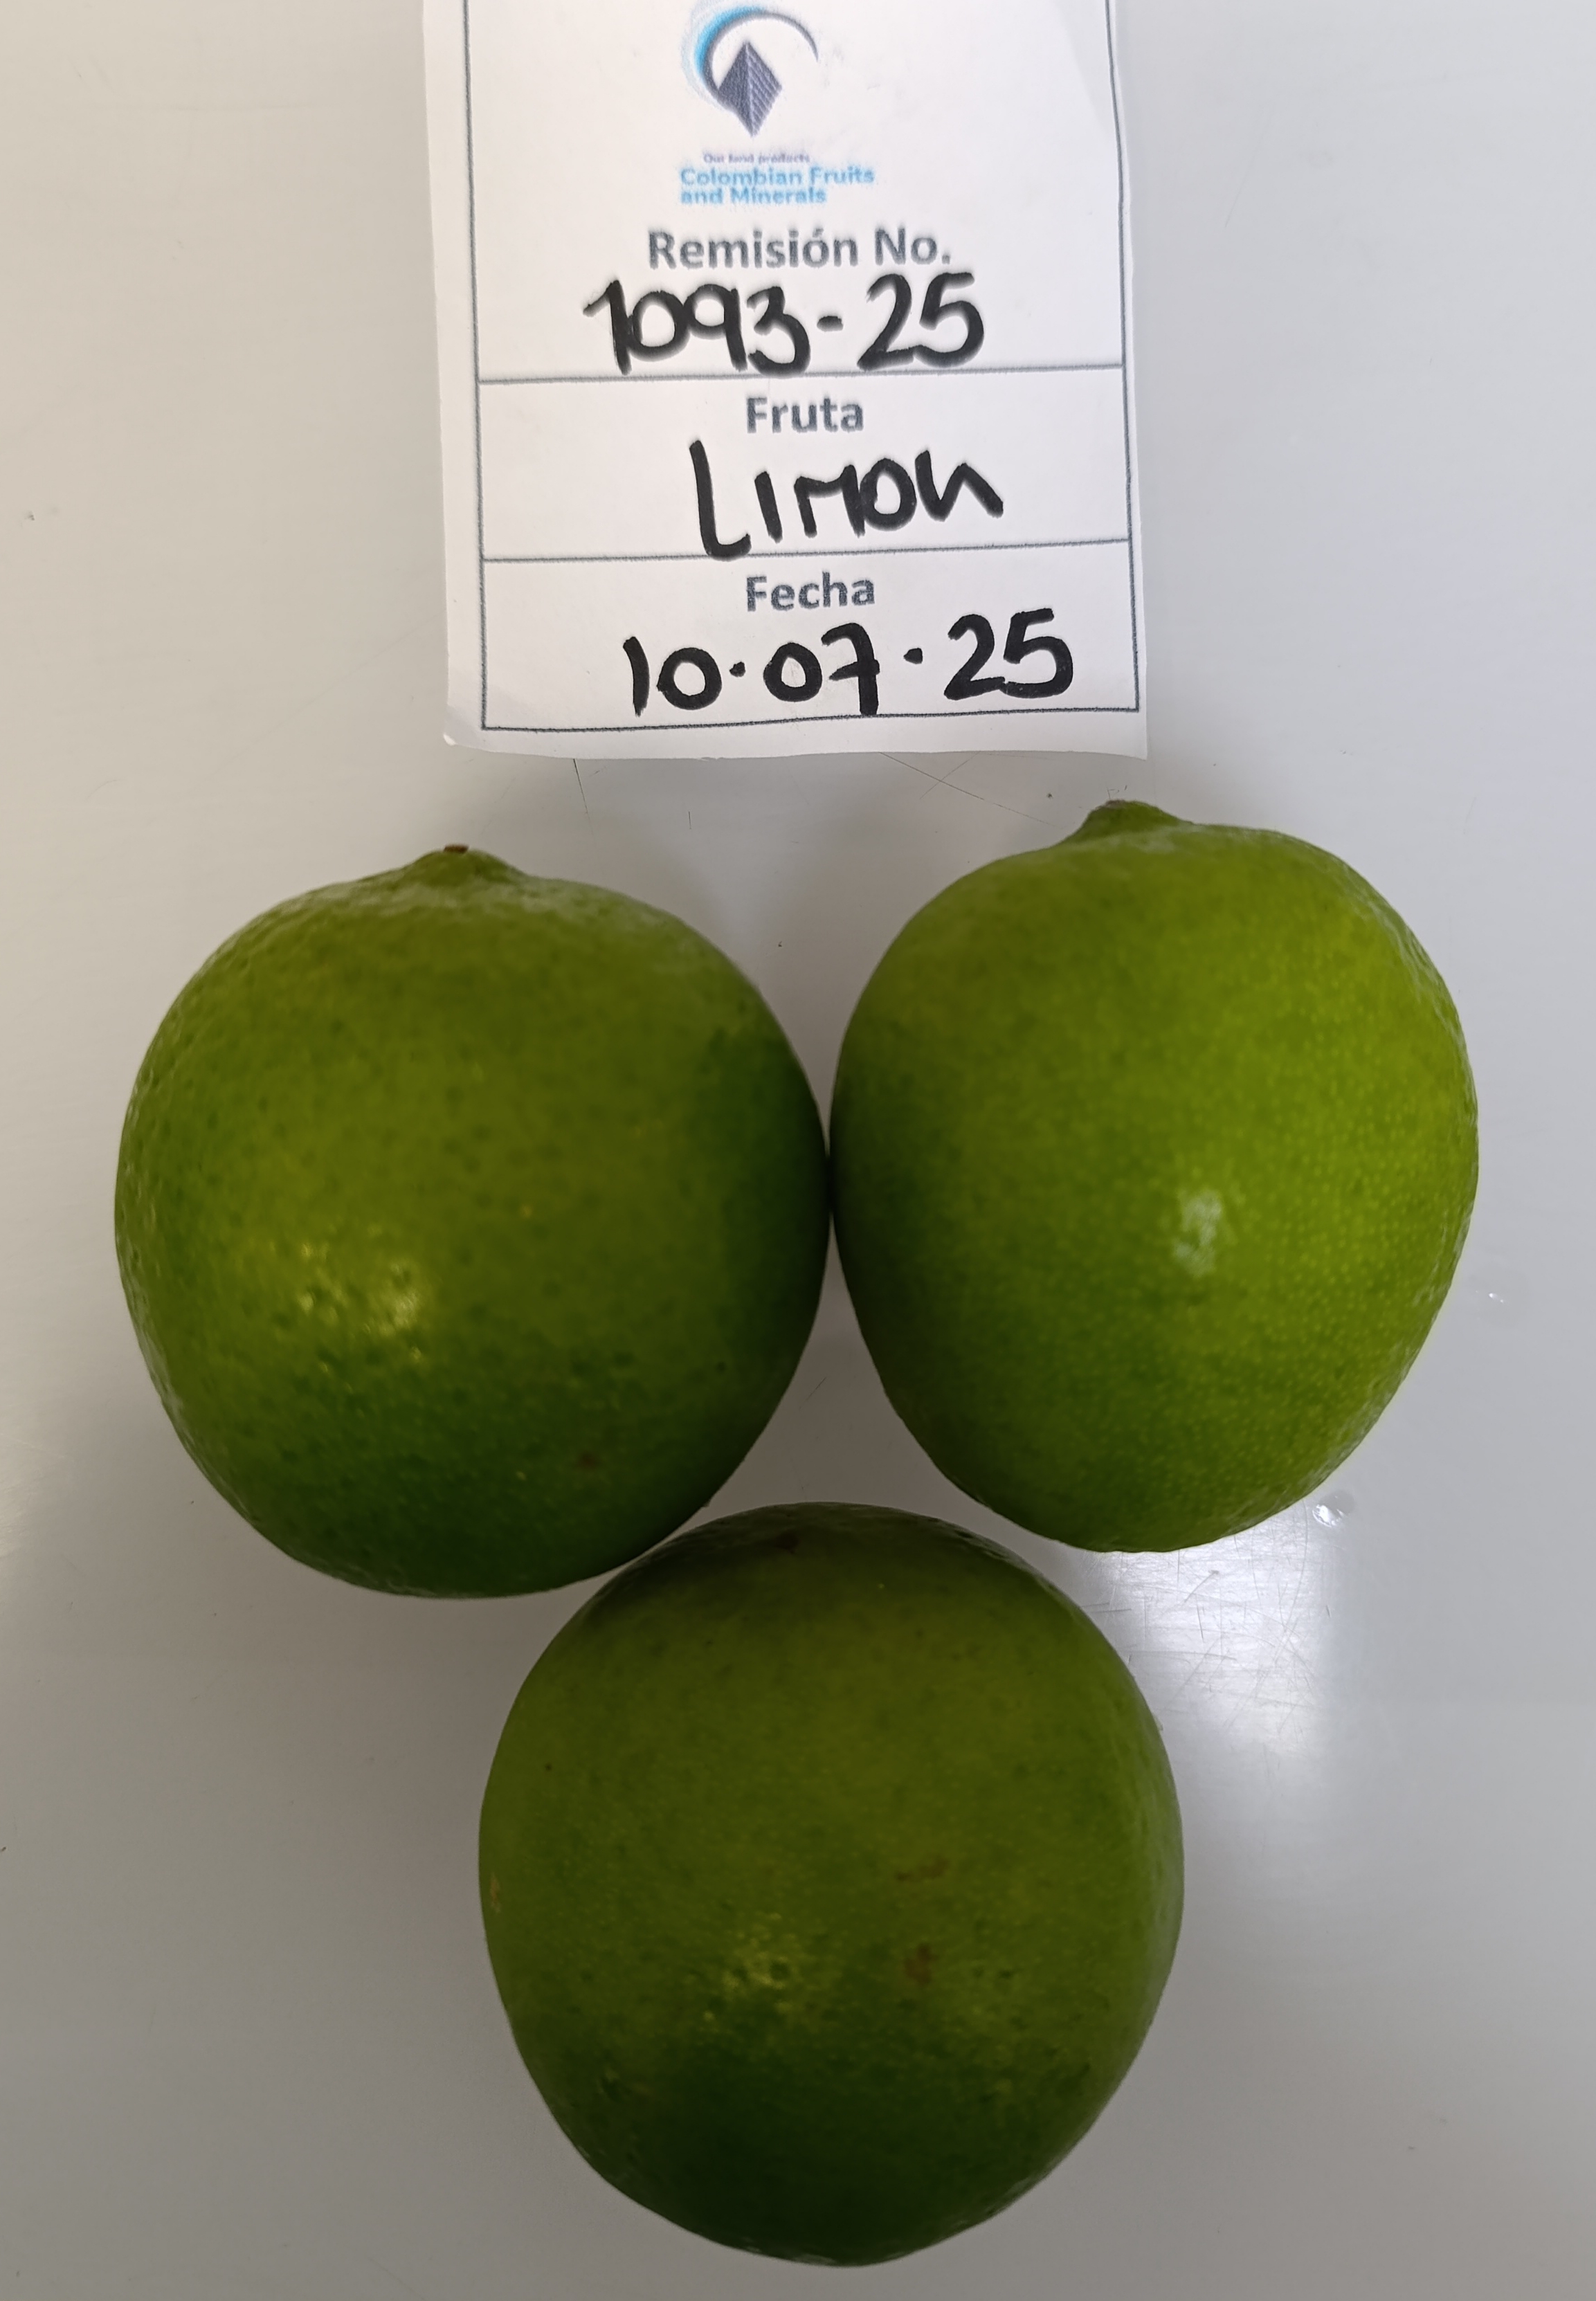 Our land products
Colombian Fruits
and Minerals
Remisión No.
1093-25
Fruta
LIMON
Fecha
10·07·25